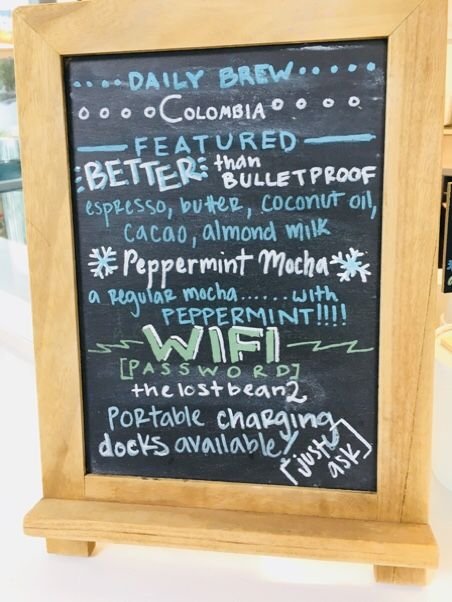 DAILY BREW
COLOMBIA
FEATURED
BETTER than
BULLETPROOF
espresso, butter, coconut oil,
cacao, almond milk
Peppermint Mocha
a regular mocha......with
PEPPERMINT!!!!
WIFI
[PASSWORD]
thelostbean2
Portable charging
docks available!
[just
ask]